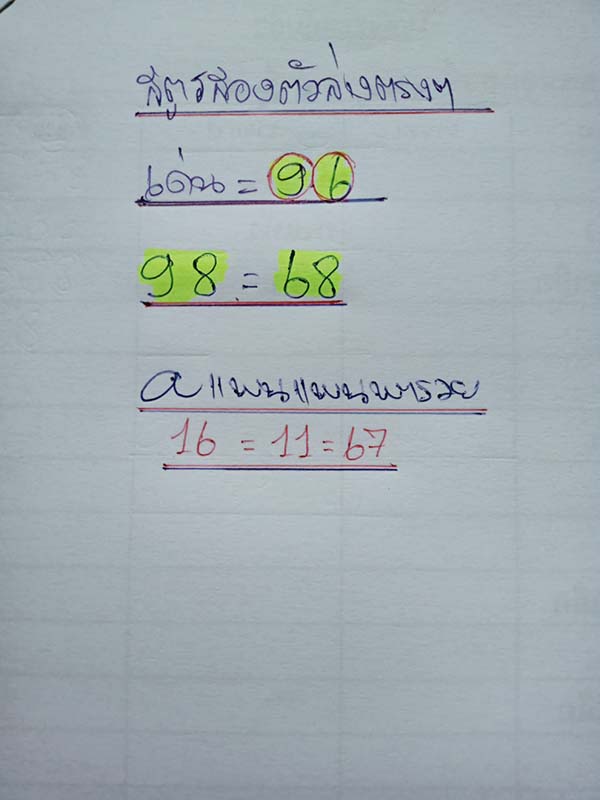 สูตรสองตัวล่างตรงๆ
เด่น = 9 6
98 = 68
aแพนแพนพารวย
16 = 11 = 67